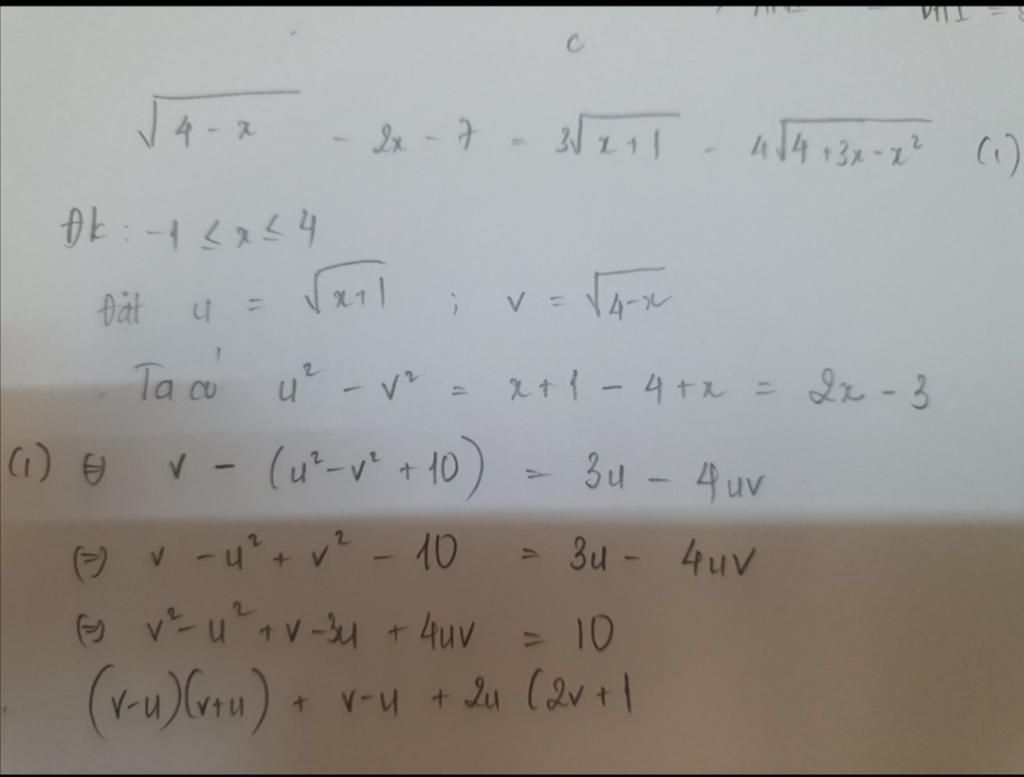 c
√(4 - x) - 2x - 7 = 3√(x + 1) - 4√(4 + 3x - x²) (1)
Đk : -1 ≤ x ≤ 4
Đặt u = √(x+1) ; v = √(4-x)
Ta có u² - v² = x + 1 - 4 + x = 2x - 3
(1) ⇔ v - (u² - v² + 10) = 3u - 4uv
⇔ v - u² + v² - 10 = 3u - 4uv
⇔ v² - u² + v - 3u + 4uv = 10
(v-u)(v+u) + v-u + 2u (2v + 1